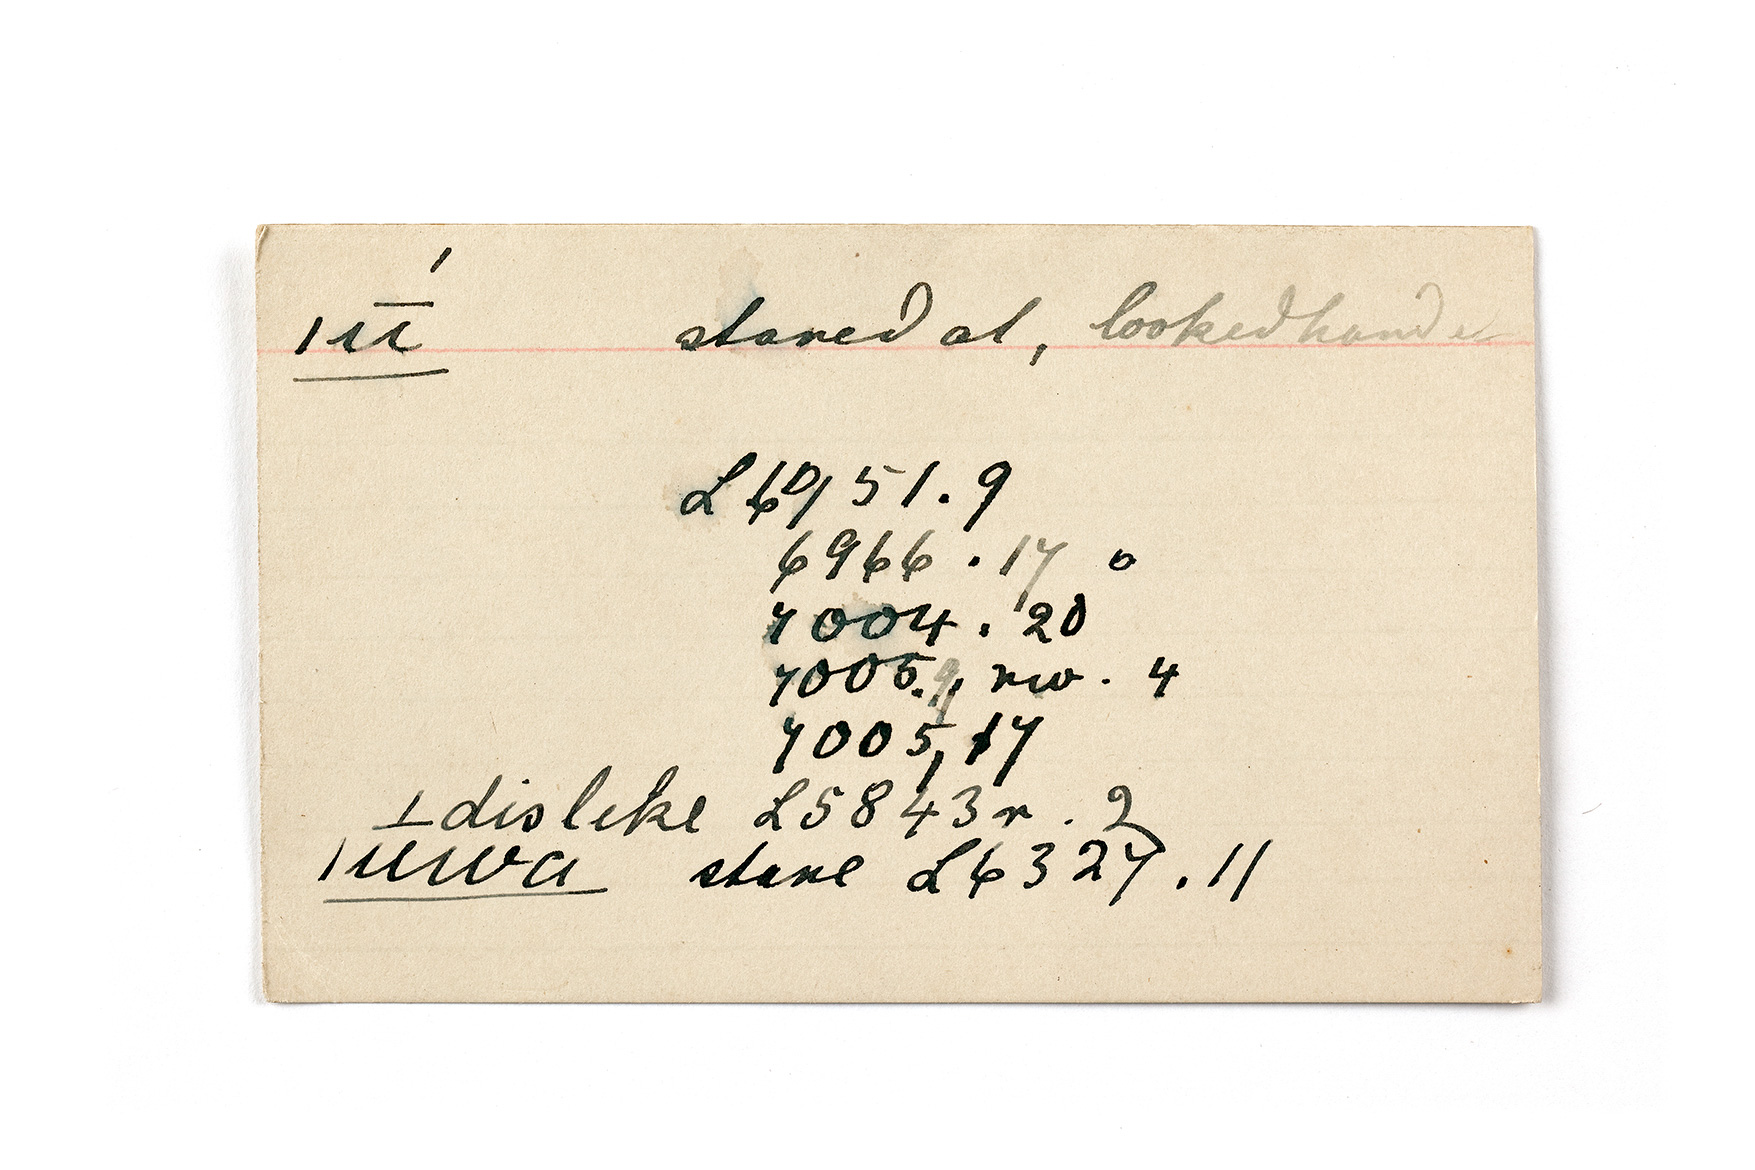 stared at, looked hard at
L 6951.9
6966.17 o
7004.20
7005.9, rw. 4
7005,17
⊥ dislike L5843r.2
stare L6327.11